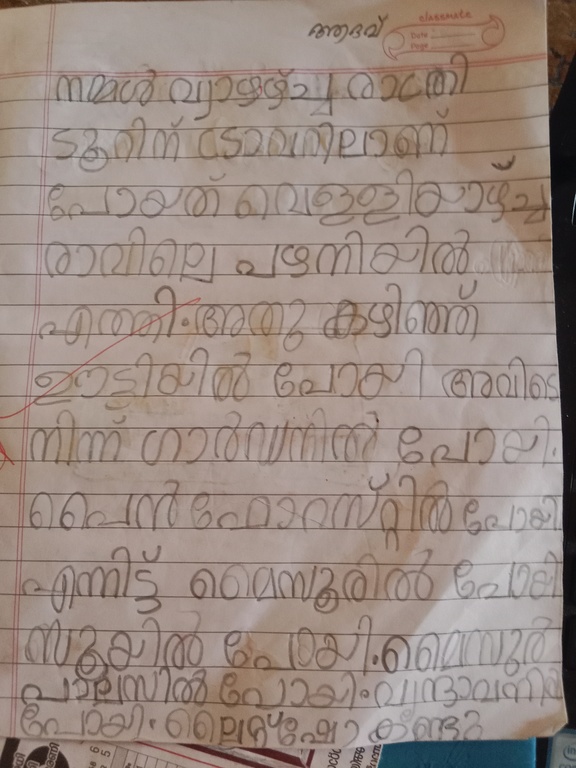 ആദവ്
classmate
Date
Page
നമ്മൾ വ്യാഴഴ്ച്ച രാത്രി
ടൂറിന്
പോയത് വെള്ളിയാഴ്ച്ച
രാവിലെ പഴനിയിൽ
എത്തി. അതു കഴിഞ്ഞ്
ഊട്ടിയിൽ പോയി അവിടെ
നിന്ന് ഗാർഡനിൽ പോയി.
പൈൻ ഫോറസ്റ്റിൽ പോയി
എന്നിട്ട് മൈസൂരിൽ പോയി
സൂയിൽ പോയി. മൈസൂർ
പാലസിൽ പോയി.
പോയി. ലൈറ്റ് ഷോ കണ്ടു